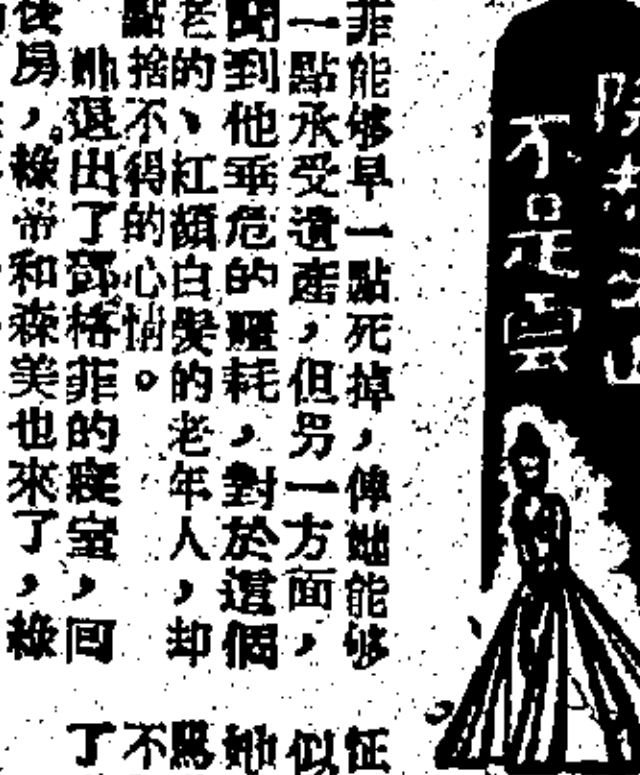 除却巫山
不是雲
菲能够早一點死掉，俾她能够
一點承受遺產，但另一方面，
聞到他垂危的噩耗，對於這個
老的、紅顏白髮的老年人，却
點捨不得的心情。
她退出了鄧格菲的寢室，回
後房，綠帝和森美也來了，綠
怔
似
她
罵
不
了